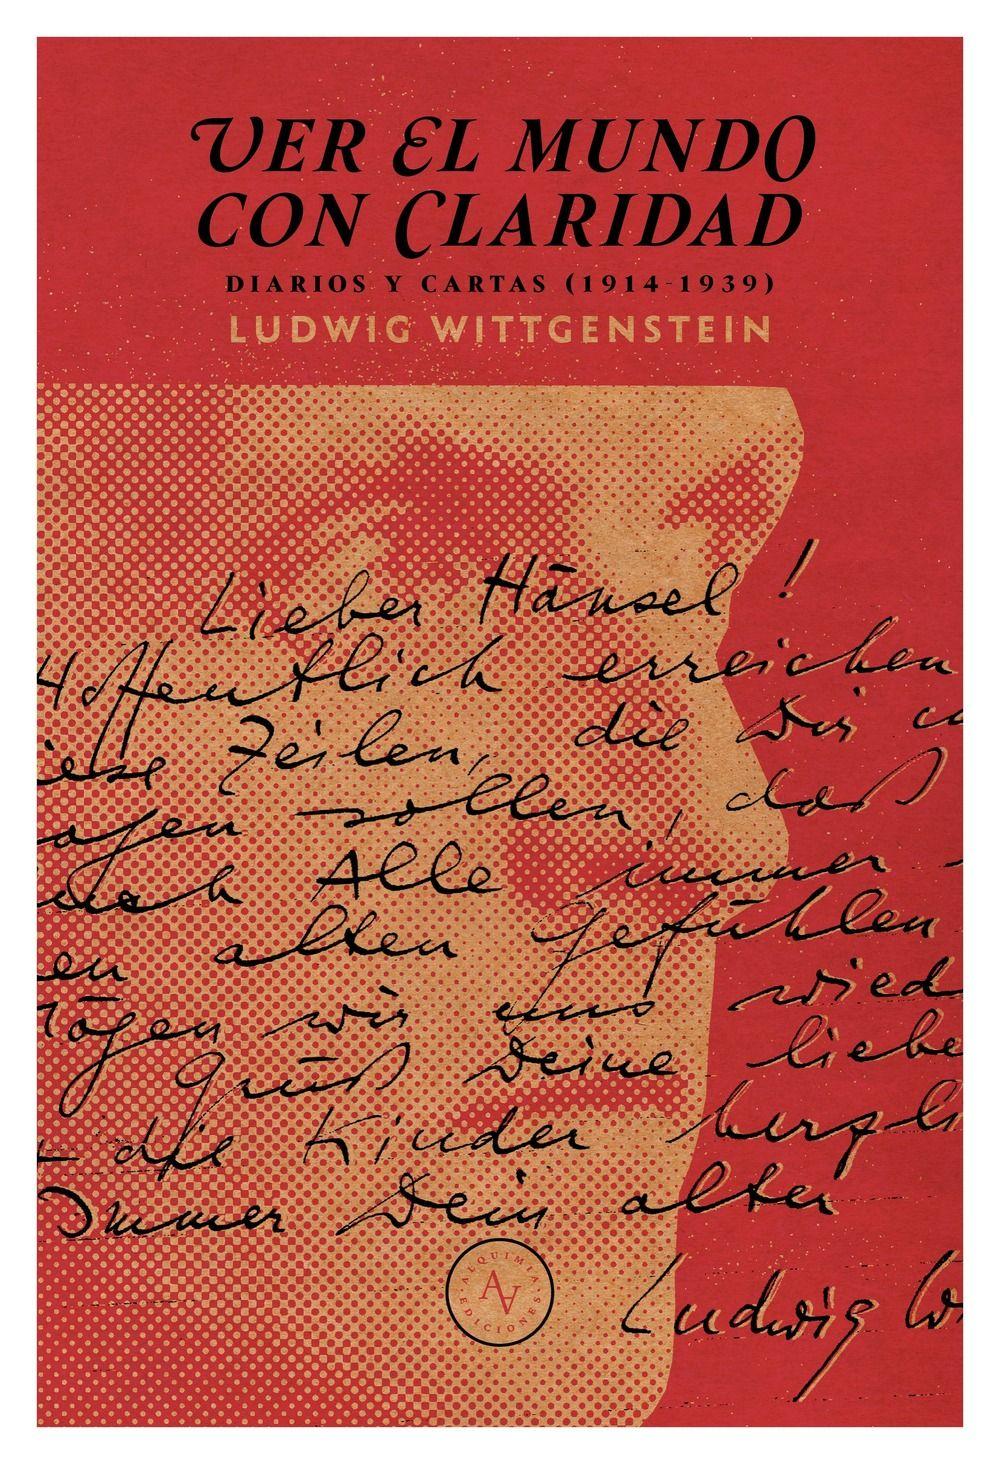 VER EL MUNDO
CON CLARIDAD
DIARIOS Y CARTAS (1914-1939)
LUDWIG WITTGENSTEIN
Lieber Hänsel!
Hoffentlich erreichen
iese Zeilen, die Dir
agen sollen, daß
Alle immer
en alten Gefühlen
mögen wir uns wied
Grüß Deine liebe
die Kinder herzli
Immer Dein alter
Ludwig W
ALQUIMIA
AV
EDICIONES